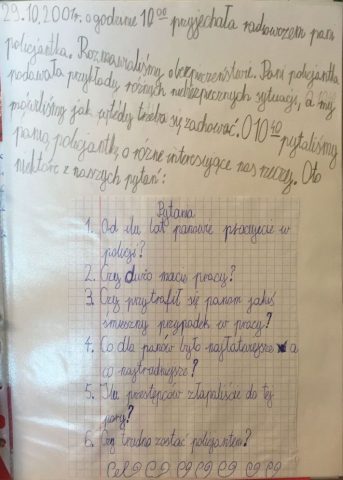 29.10.2001r. o godzinie 10⁰⁰ przyjechała radiowozem pani
policjantka. Rozmawialiśmy o bezpieczeństwie. Pani policjantka
podawała przykłady różnych niebezpiecznych sytuacji, a my
mówiliśmy jak wtedy trzeba się zachować. O 10⁴⁰ pytaliśmy
panią policjantkę o różne interesujące nas rzeczy. Oto
niektóre z naszych pytań:
Pytania
1. Od ilu lat panowie pracujecie w
policji?
2. Czy dużo macie pracy?
3. Czy przytrafił się panom jakiś
śmieszny przypadek w pracy?
4. Co dla panów było najłatwiejsze a
co najtrudniejsze?
5. Ilu przestępców złapaliście do tej
pory?
6. Czy trudno zostać policjantem?